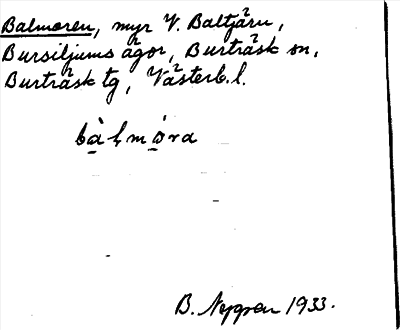 Balmoren, myr V. Baltjärn,
Bursiljums ägor, Burträsk sn,
Burträsk tg, Västerb. l.
bàḷmóra
B. Nygren 1933.